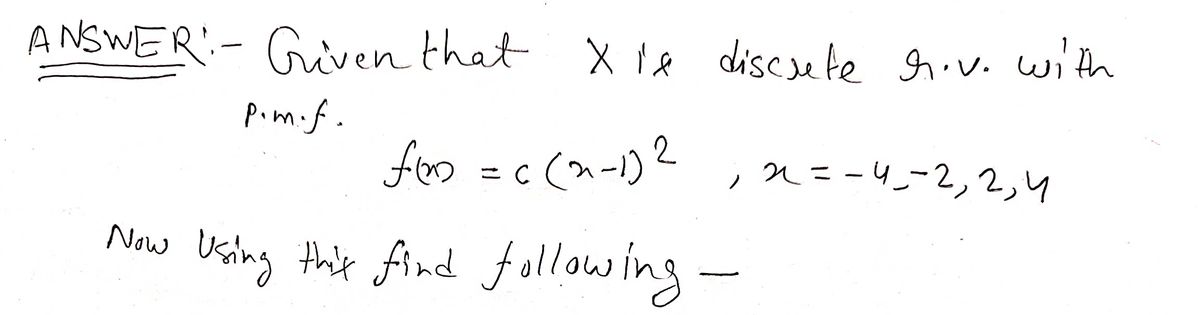 ANSWER:- Given that X is discrete r.v. with
p.m.f.
f(x) = c (x-1)², x = -4, -2, 2, 4
Now Using this find following —